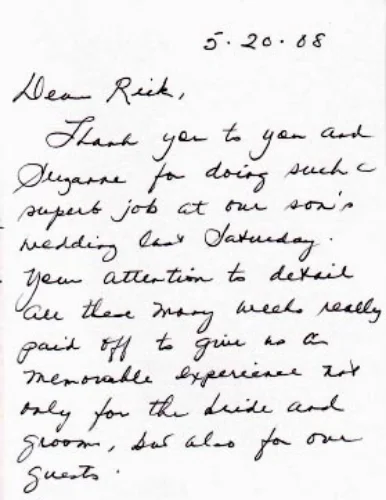 5·20·08
Dear Rick,
Thank you to you and
Suzanne for doing such a
superb job at our son's
wedding last Saturday.
Your attention to detail
all these many weeks really
paid off to give us a
memorable experience not
only for the bride and
groom, but also for our
guests.